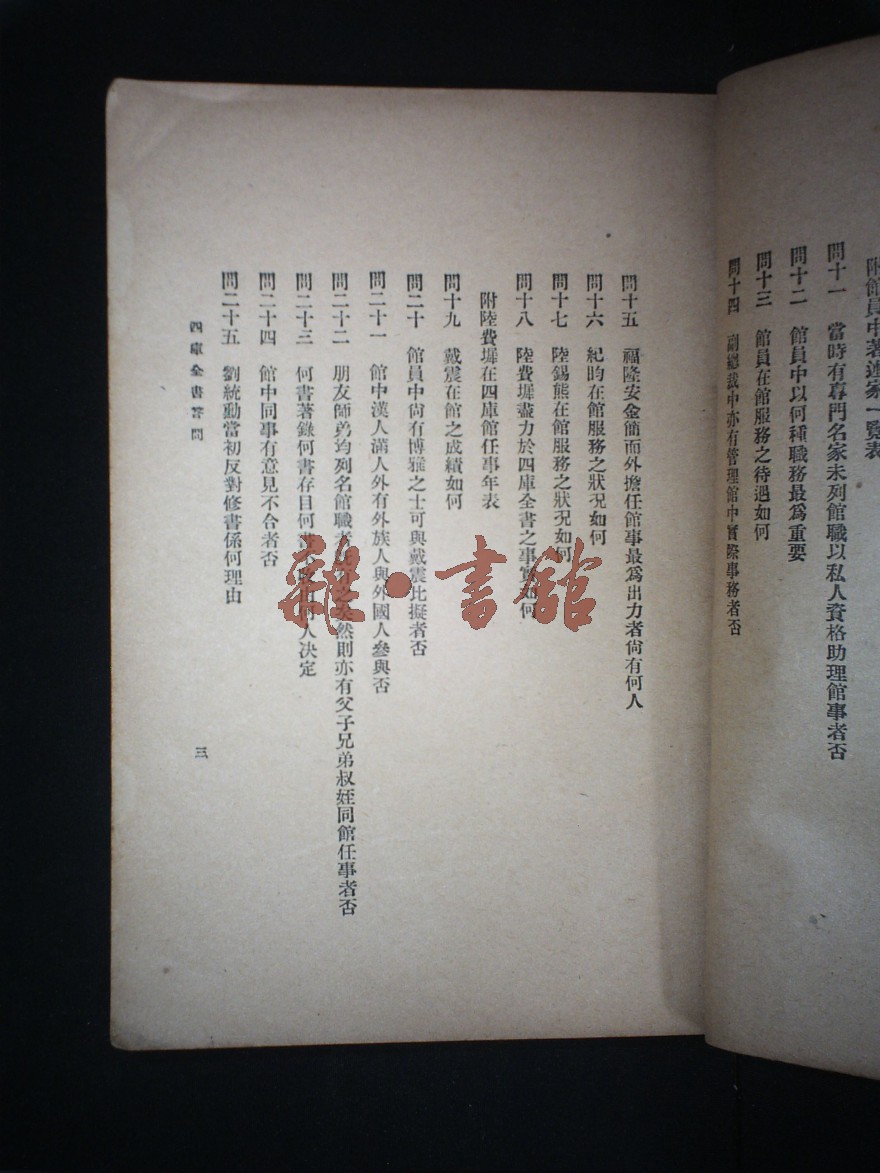 附館員中著述家一覽表
問十一 當時有專門名家未列館職以私人資格助理館事者否
問十二 館員中以何種職務最爲重要
問十三 館員在館服務之待遇如何
問十四 副總裁中亦有管理館中實際事務者否
問十五 福隆安金簡而外擔任館事最爲出力者尙有何人
問十六 紀昀在館服務之狀況如何
問十七 陸錫熊在館服務之狀況如何
問十八 陸費墀盡力於四庫全書之事實如何
附陸費墀在四庫館任事年表
問十九 戴震在館之成績如何
問二十 館員中尙有博雅之士可與戴震比擬者否
問二十一 館中漢人滿人外有外族人與外國人參與否
問二十二 朋友師弟均列名館職者 之 然則亦有父子兄弟叔姪同館任事者否
問二十三 何書著錄何書存目何書 人決定
問二十四 館中同事有意見不合者否
問二十五 劉統勳當初反對修書係何理由
四庫全書答問
三
雜·書館